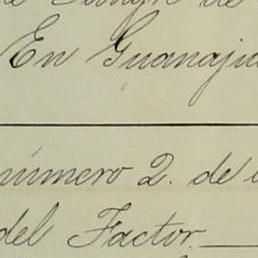 de
En Guanaju
número 2. de
del Factor.